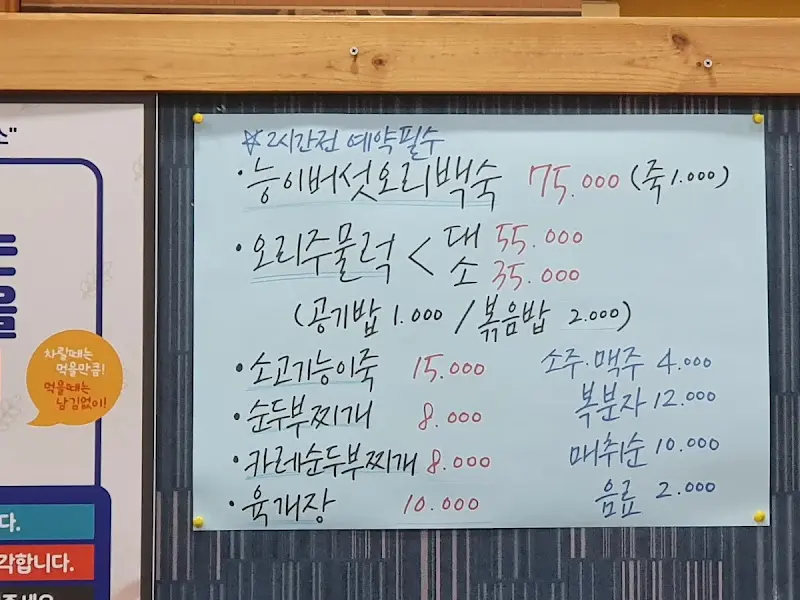 ☆ 2시간전 예약필수
· 능이버섯오리백숙 75.000 (죽 1.000)
· 오리주물럭 < 대 55.000
소 35.000
(공기밥 1.000 / 볶음밥 2.000)
· 소고기능이죽 15.000
· 순두부찌개 8.000
· 카레순두부찌개 8.000
· 육개장 10.000
소주·맥주 4.000
복분자 12.000
매취순 10.000
음료 2.000
차릴때는
먹을만큼!
먹을때는
남김없이!
다.
각합니다.